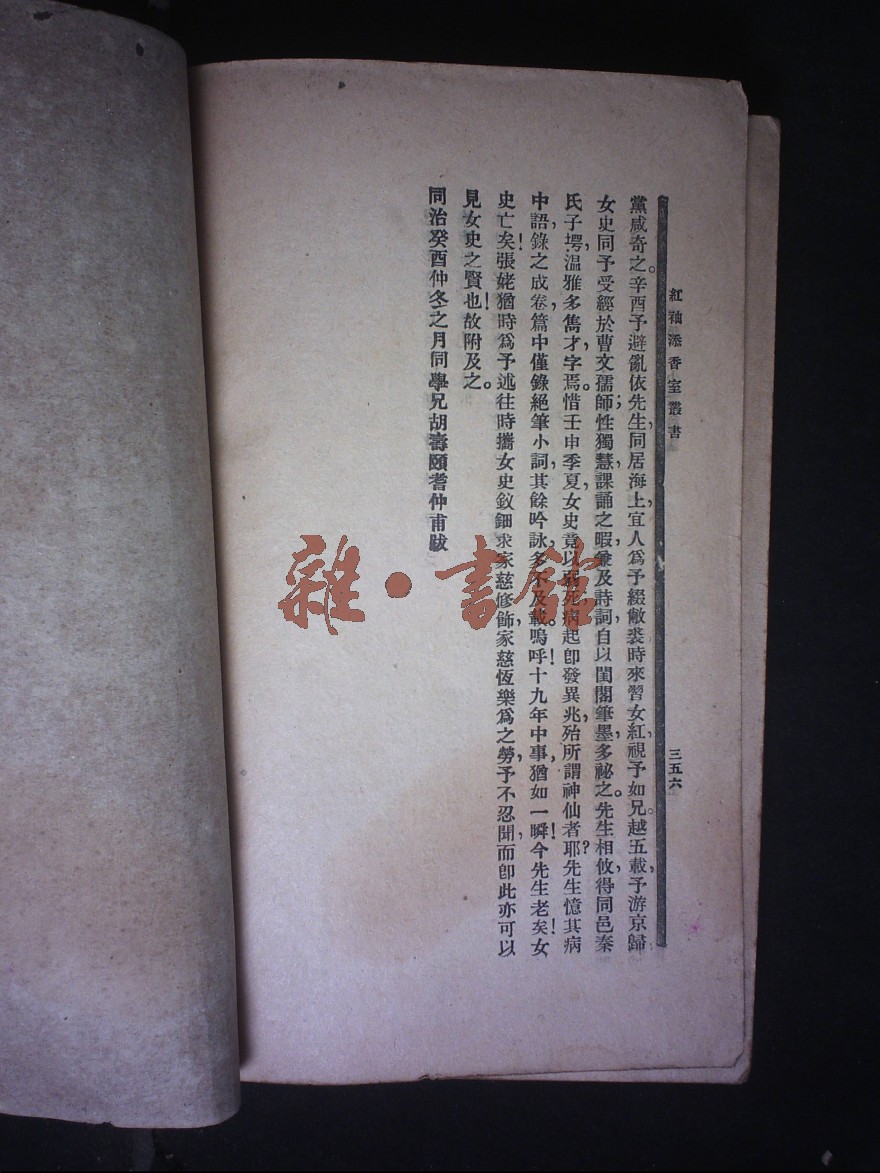 紅袖添香室叢書
三五六
黨咸奇之。辛酉予避亂依先生,同居海上,宜人爲予綴敝裘時來習女紅,視予如兄。越五載,予游京歸
女史同予受經於曹文孺師;性獨慧,課誦之暇,兼及詩詞,自以閨閣筆墨,多祕之。先生相攸,得同邑秦
氏子堮,溫雅多雋才,字焉。惜壬申季夏,女史竟以弱死,病起卽發異兆,殆所謂神仙者耶?先生憶其病
中,語,錄之成卷,篇中僅錄絕筆小詞,其餘吟詠,多不及載。嗚呼!十九年中事,猶如一瞬!今先生老矣!女
史亡矣!張姥猶時爲予述往時攜女史釵鈿求家慈修飾,家慈恆樂爲之勞,予不忍聞,而卽此亦可以
見女史之賢也!故附及之。
同治癸酉仲冬之月同學兄胡壽頤耆仲甫跋
雜·書館